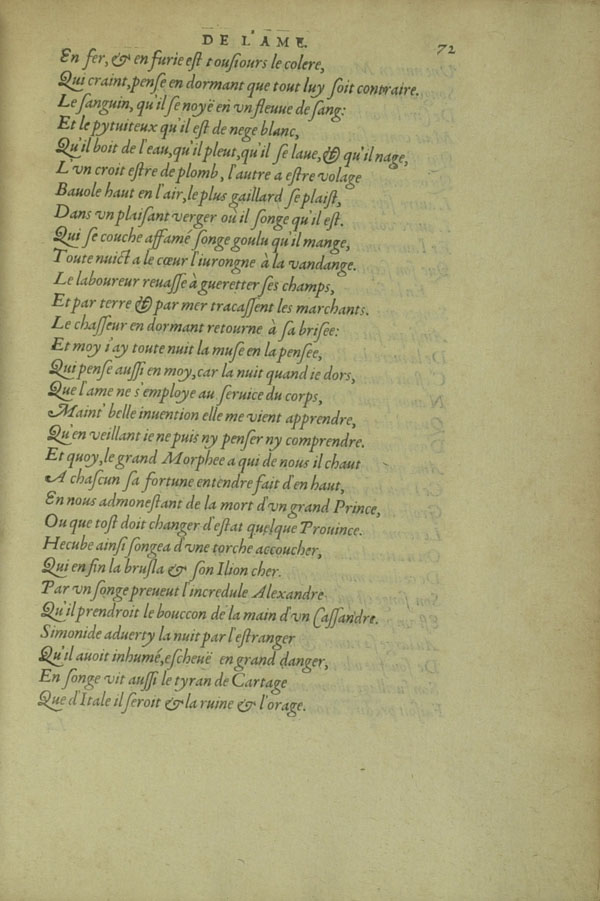 DE L'AME.
72
En fer, & en furie est tousiours le colere,
Qui craint, pense en dormant que tout luy soit contraire.
Le sanguin, qu'il se noyë en vn fleuue de sang:
Et le pytuiteux qu'il est de nege blanc,
Qu'il boit de l'eau, qu'il pleut, qu'il se laue, & qu'il nage,
L'vn croit estre de plomb, l'autre a estre volage
Bauole haut en l'air, le plus gaillard se plaist,
Dans vn plaisant verger ou il songe qu'il est.
Qui se couche affamé songe goulu qu'il mange,
Toute nuict a le cœur l'iurongne à la vandange.
Le laboureur reuasse à gueretter ses champs,
Et par terre & par mer tracassent les marchants.
Le chasseur en dormant retourne à sa brisee:
Et moy i'ay toute nuit la muse en la pensee,
Qui pense aussi en moy, car la nuit quand ie dors,
Que l'ame ne s'employe au seruice du corps,
Maint' belle inuention elle me vient apprendre,
Qu'en veillant ie ne puis ny penser ny comprendre.
Et quoy, le grand Morphee a qui de nous il chaut
A chascun sa fortune entendre fait d'en haut,
En nous admonestant de la mort d'vn grand Prince,
Ou que tost doit changer d'estat quelque Prouince.
Hecube ainsi songea d'vne torche accoucher,
Qui en fin la brusla & son Ilion cher.
Par vn songe preueut l'incredule Alexandre
Qu'il prendroit le bouccon de la main d'vn Cassandre.
Simonide aduerty la nuit par l'estranger
Qu'il auoit inhumé, escheuë en grand danger,
En songe vit aussi le tyran de Cartage
Que d'Itale il seroit & la ruine & l'orage.